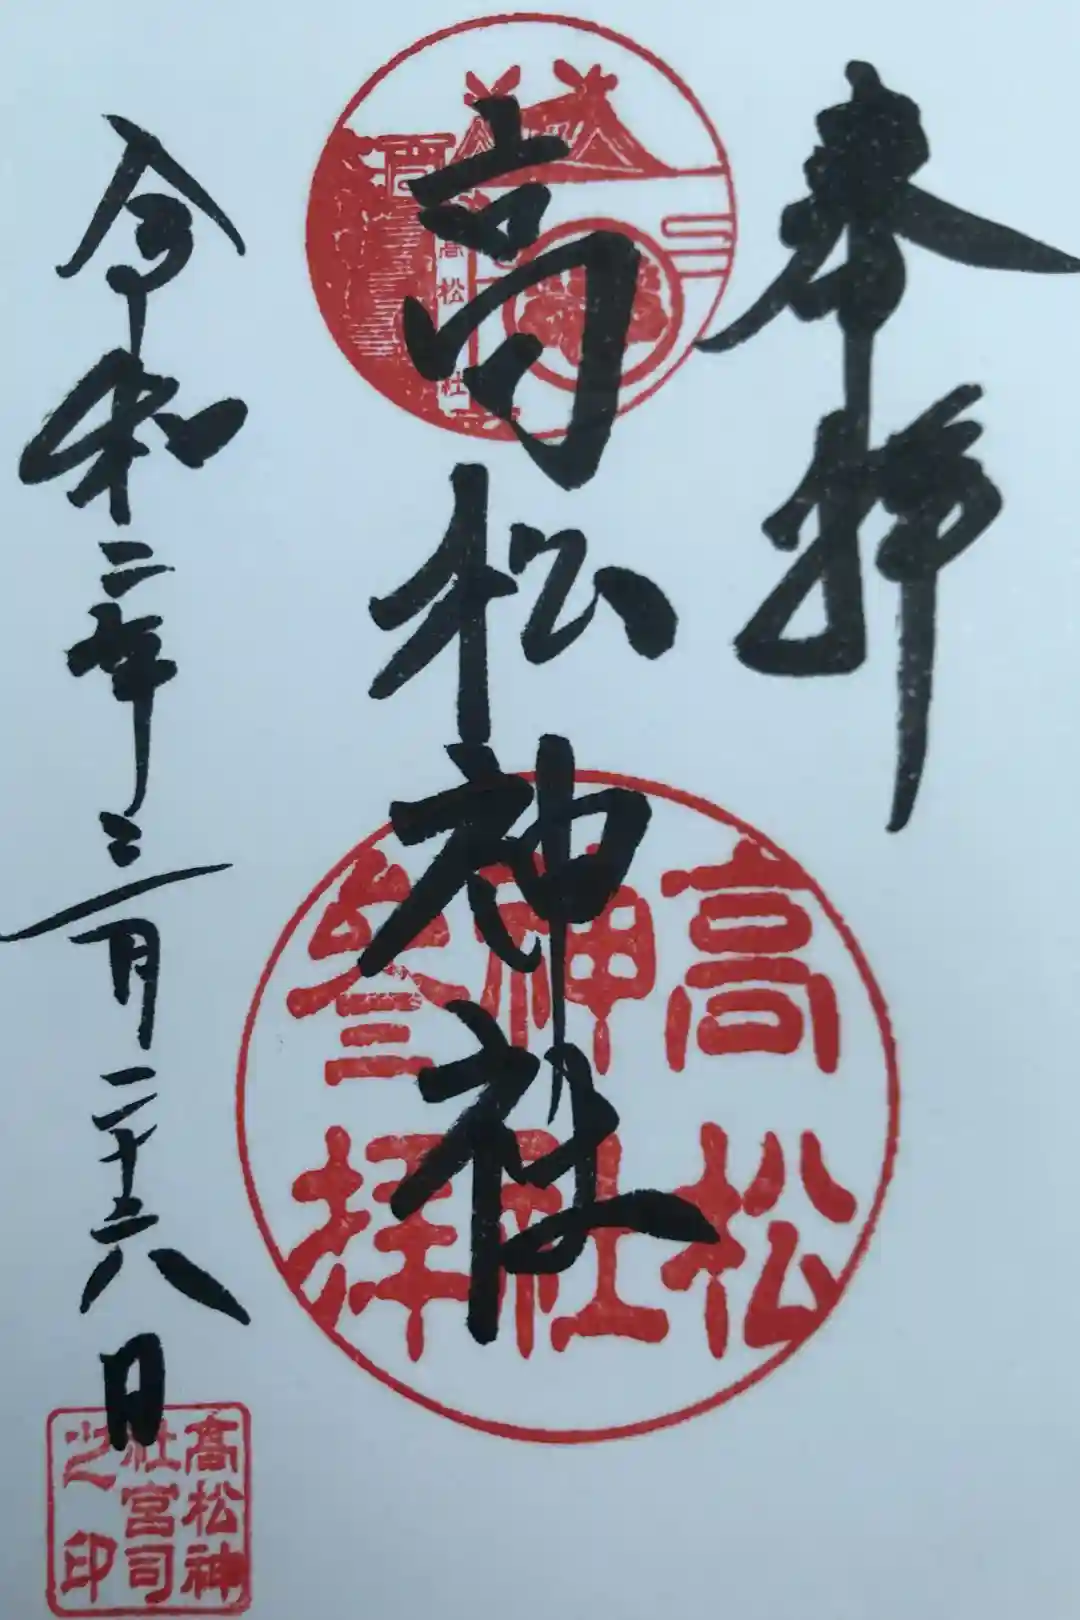 奉拝
高松神社
高松神社
高松
神社
参拝
令和二年三月二十六日
高松神
社宮司
之印